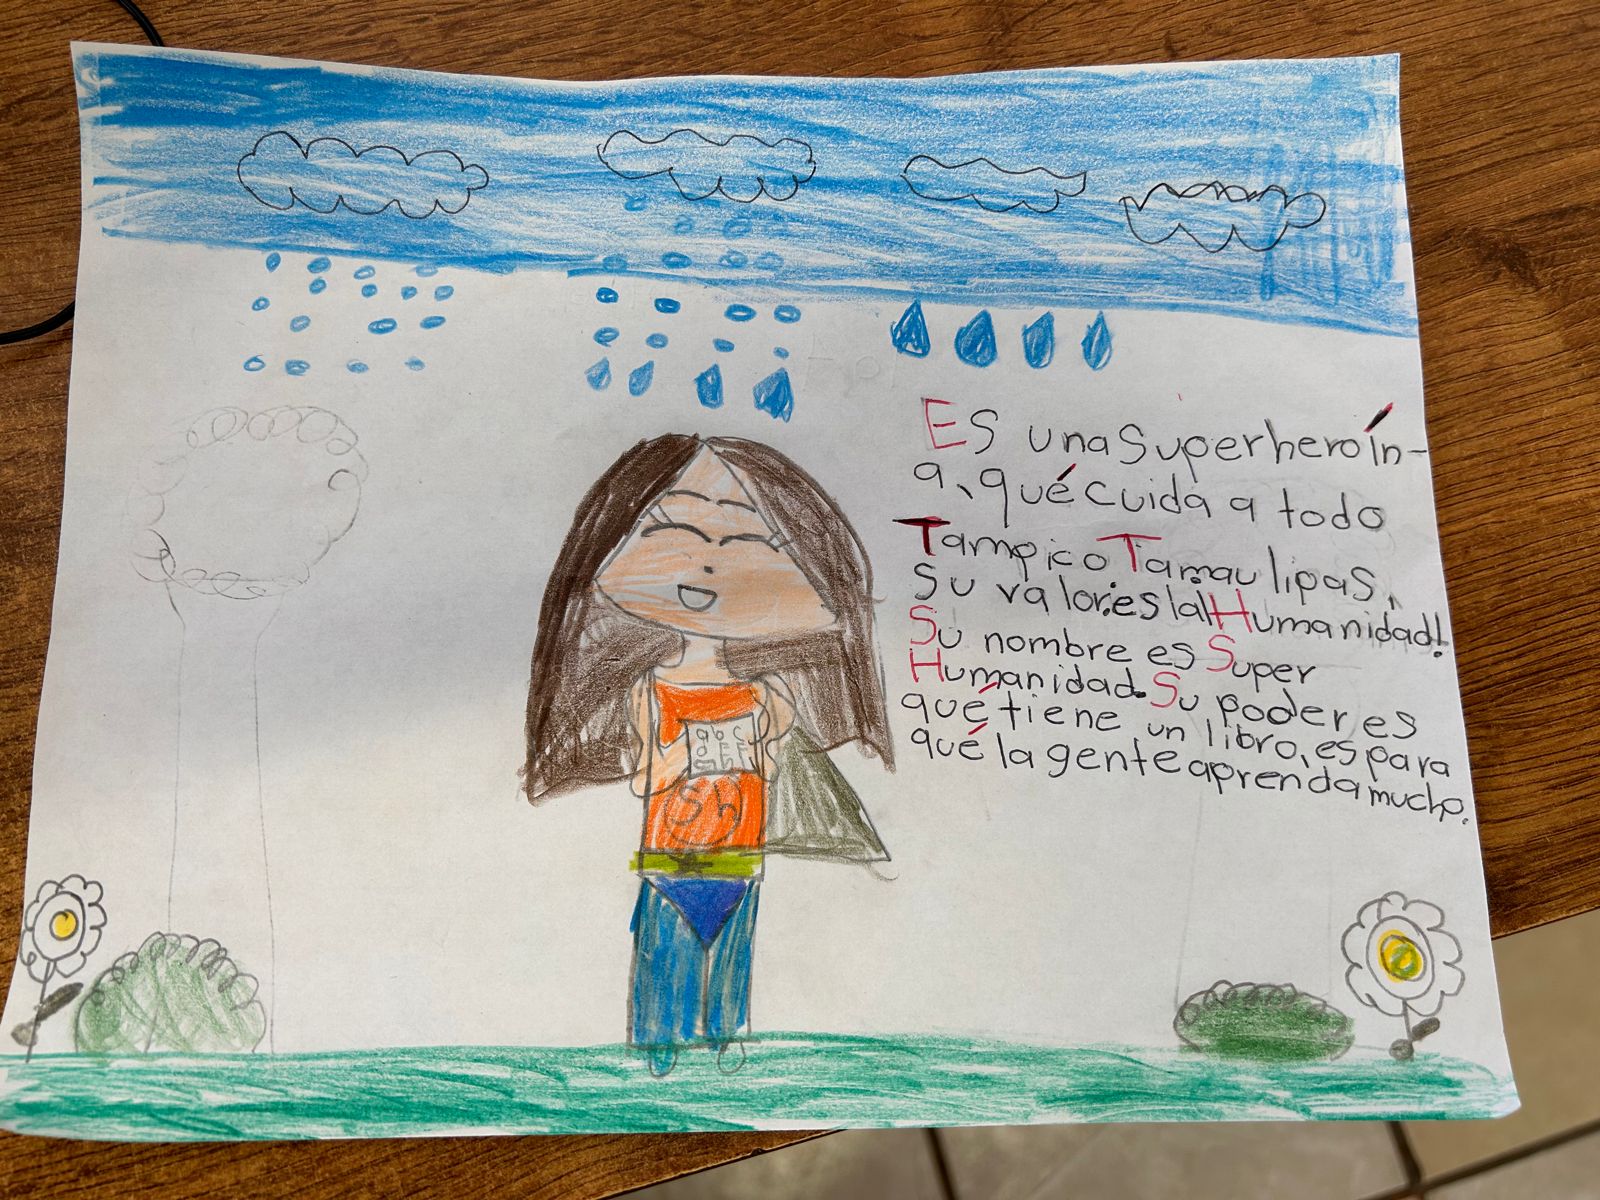 Es una superheroín-
a, qué cuida a todo
Tampico Tamaulipas,
su valor:es la¡Humanidad!
Su nombre es Super
Humanidad. Su poder es
qué tiene un libro, es para
qué la gente aprenda mucho.
Sh